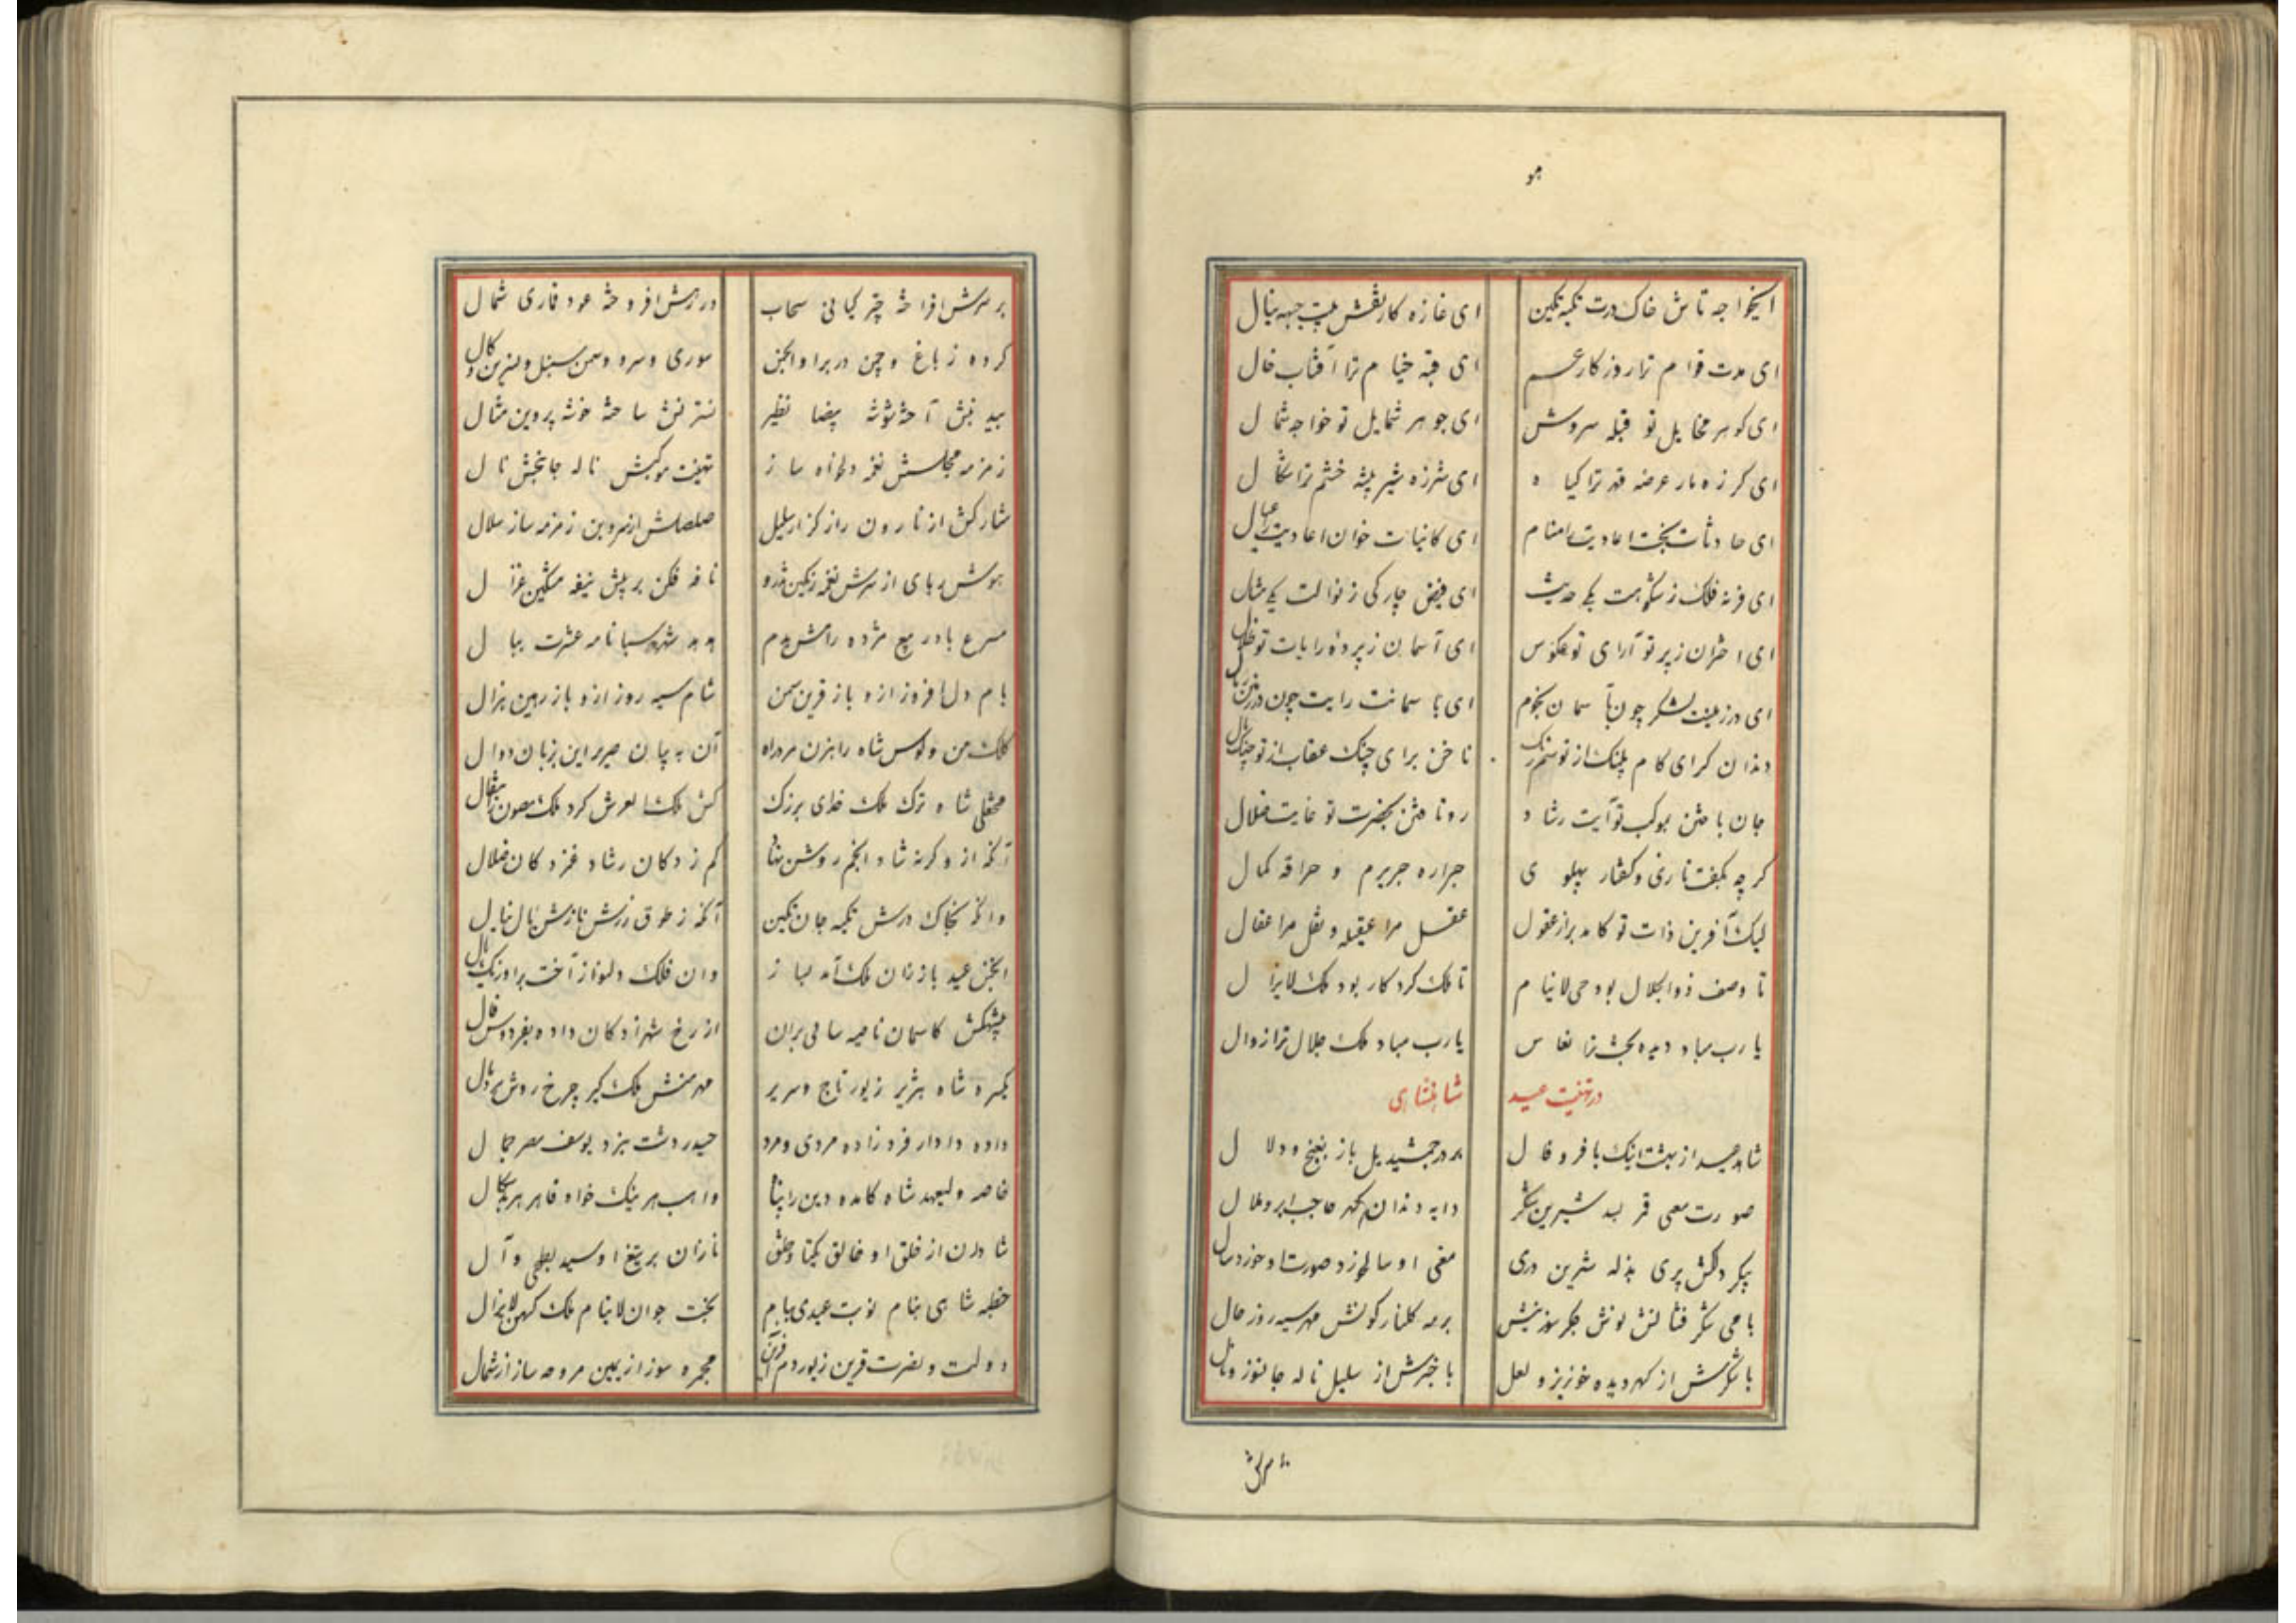 هو
ای خواجه تاش خاک درت تکیه نکین ای غازه کار نقش پیت جبهه ینال
ای مدت قوام ترا روزکار عم ای قبه خیام ترا آفتاب خال
ای کوهر مخایل تو قبله سروش ای جوهر شمایل تو خواجه شمال
ای کرزه مار عرضه قهر ترا کیاه ای شرزه شیر پیشه خشم ترا شکال
ای حادثات بخت اعادیت امنام ای کاینات خوان اعادیت را عیال
ای فرنه فلک ز شکوهت یکی حدیث ای فیض چار کی ز نوالت یکی مثال
ای اختران ز پرتو آرای تو عکوس ای آسمان ز پرده رایات تو ظلال
ای در زمینت لشکر چون بآسمان نجوم ای بآسمانت رایت چون در زمین
دندان کرای کام پلنک از تو ناخن برای چنک عقاب از تو
جان باختن بموکب تو آیت رشاد رو تافتن بحضرت تو غایت ضلال
کرچه بکفت تازی و کفتار پهلوی جراره جریرم و حراقه کمال
لیک آفرین ذات تو کامد بر از عقول عقل مرا عقیله و نقل مرا عقال
تا وصف ذوالجلال بود حی لاینام تا ملک کردکار بود ملک لایزال
یارب مباد دیده بخت ترا نعاس یارب مباد ملک جلال ترا زوال
در تهنیت عید شاهنشاهی
شاهد عید از بهشت اینک با فر و فال بر در جمشید یل باز بغنج و دلال
صورت معنی قمر بسد شیرین شکر دایه دندان کهر حاجب ابرو هلال
پیکر دلکش پری بذله شیرین دری معنی او سالخورد صورت او خورد سال
با می شکر فشانش نوش جکر سوز نیش بر مه کلنار کونش مهر سیه روز خال
با شکرش از کهر دیده خونریز و لعل با خبرش از سلیل ناله جانسوز و نال
بر سرش
بر سرش افراخته چتر کیانی سحاب در رهش افروخته عود قماری شمال
کرده ز باغ و چمن در بر او انجمن سوری و سرو و سمن سنبل و نسرین و کال
بید بنش آخته توشه بیضا نظیر نسترنش ساخته خوشه پروین مثال
زمزمه مجلسش نغمه دلخواه ساز تهنیت موکبش ناله جانبخش نال
شارکش از نارون راز کزار سلیل صلصلش از سروبن زمزمه ساز سلال
هوش ربای از سرش نغمه رنکین نافه فکن بر پیش نیفه مشکین غزال
مسرع باد ربیع مژده رامش بدم هدهد شهر سبا نامه عشرت ببال
بام دل افروز ازو باز قرین سمن شام سیه روز ازو باز رهین نزال
کلک من و کوس شاه را بزن مرد راه آن به بیان صریر این بزبان دوال
شاه ترک ملک خدای بزرک کش ملکا لعرش کرد ملک مصون ز
آنکه ازو کرنه شاد انجم روشن نهاد کم زدکان رشاد غمزدکان ضلال
وانکه بخاک درش تکیه جان نکین آنکه ز طوق زرش نازش یال ینال
انجمن عید باز زان ملک آمد بساز وان فلک دلنواز آخت بر اورنک بال
پیشکش کاسمان ناصیه سایی بران از رخ شهزادکان داده بفردوس فال
یکسره شاه هژیر زیور تاج و سریر مهر منش ملک کیر چرخ روش بر دال
داده دادار فرد زاده مردی و مرد حیدر دشت نبرد یوسف مصر جمال
خاصه ولیعهد شاه کامده دین را پناه واهب هر نیک خواه قاهر هر بدسکال
شادان از خلق او خالق یکتا و خلق نازان بر تیغ او سید بطحی و آل
خطبه شاهی بنام نوبت عیدی ببام بخت جوان لاینام ملک کهن لایزال
دولت و نصرت قرین زیور دم مجمره سوز از یمین مروحه ساز از شمال